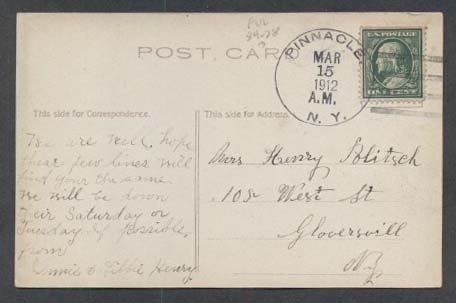 POST CARD
PINNACLE
MAR
15
1912
A.M.
N. Y.
U.S. POSTAGE
ONE CENT
This side for Correspondence.
This side for Address.
We are well, hope
these few lines will
find you the same
We will be down
their Saturday or
Tuesday if possible,
from
Henry
Mrs Henry Blitsch
West St
Gloversvill
N.Y.